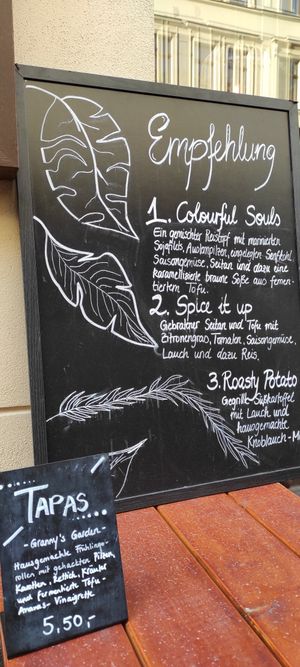 Empfehlung
1. Colourful Souls
Ein gemischter Reistopf mit marinierten
Sojafilets, Austernpilzen, eingelegten Senfkohl,
Saisongemüse, Seitan und dazu eine
karamellisierte braune Soße aus fermen-
tiertem Tofu.
2. Spice it up
Gebratener Seitan und Tofu mit
Zitronengras, Tomaten, Saisongemüse,
Lauch und dazu Reis.
3. Roasty Potato
Gegrillte Süßkartoffel
mit Lauch und
hausgemachte
Knoblauch-M
TAPAS...
- Granny's Garden -
Hausgemachte Frühlings-
rollen mit gehackten Pilzen,
Karotten, Rettich, Kräuter
und fermentierte Tofu-
Ananas-Vinaigrette
5,50,-